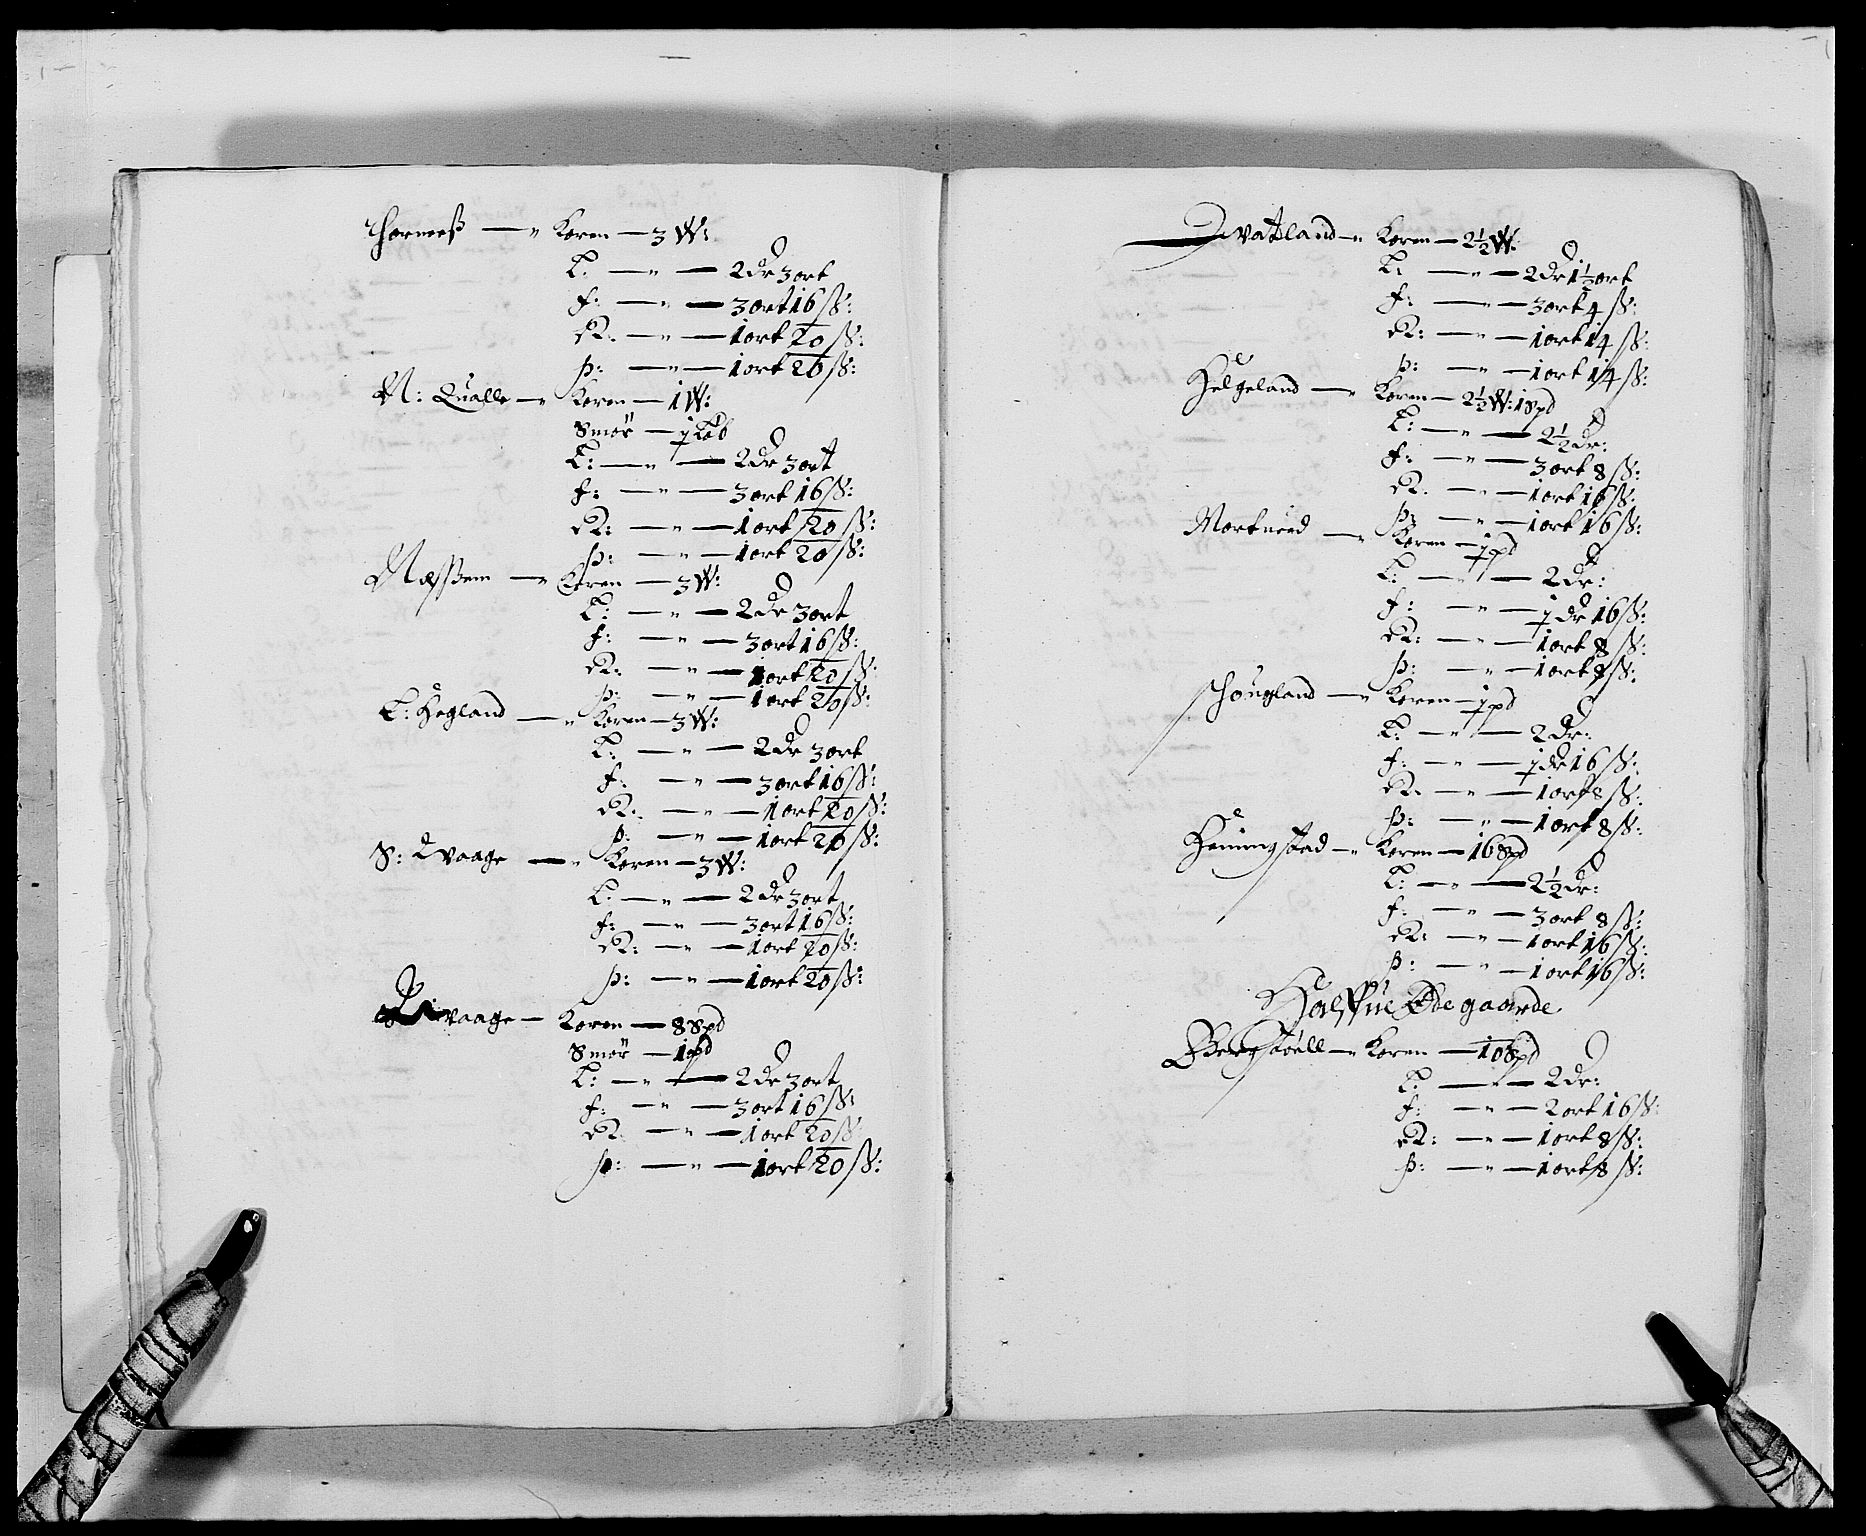 Hornness — Koren — 3 W:
L: — „ — 2 dr 3 ort
f: — „ — 3 ort 16 ß:
R: — „ — 1 ort 20 ß:
Þ: — „ — 1 ort 20 ß:
N: Qualle — Koren — 1 W:
Smør — 1 Løb
L: — „ — 2 dr 3 ort
f: — „ — 3 ort 16 ß:
R: — „ — 1 ort 20 ß:
Þ: — „ — 1 ort 20 ß:
Næssem — Koren — 3 W:
L: — „ — 2 dr 3 ort
f: — „ — 3 ort 16 ß:
R: — „ — 1 ort 20 ß:
Þ: — „ — 1 ort 20 ß:
L: Hegland — „ Koren — 3 W:
L: — „ — 2 dr 3 ort
f: — „ — 3 ort 16 ß:
R: — „ — 1 ort 20 ß:
Þ: — „ — 1 ort 20 ß:
S: Waage — „ Koren — 3 W:
L: — „ — 2 dr 3 ort
f: — „ — 3 ort 16 ß:
R: — „ — 1 ort 20 ß:
Þ: — „ — 1 ort 20 ß:
Koren — 8 Spd
Smør — 1 pd
L: — „ — 2 dr 3 ort
f: — „ — 3 ort 16 ß:
R: — „ — 1 ort 20 ß
Þ: — „ — 1 ort 20 ß:
Tvatland — „ Koren — 2½ W:
L: — „ — 2 dr 1½ ort
f: — „ — 3 ort 4 ß:
R: — „ — 1 ort 14 ß:
Þ: — „ — 1 ort 14 ß:
Helgeland — „ Koren — 2½ W: 1 Spd
L: — „ — 2½ dr:
f: — „ — 3 ort 8 ß:
R: — „ — 1 ort 16 ß:
Þ: — „ — 1 ort 16 ß:
— „ Koren — 1 pd
L: — „ — 2 dr:
f: — „ — ½ dr 16 ß:
R: — „ — 1 ort 8 ß:
Þ: — „ — 1 ort 8 ß:
Schougland — „ Koren — 1 pd
L: — „ — 2 dr:
f: — „ — ½ dr 16 ß:
R: — „ — 1 ort 8 ß:
Þ: — „ — 1 ort 8 ß:
Henningstad — „ Koren — 16 Spd
L: — „ — 2½ dr:
f: — „ — 3 ort 8 ß:
R: — „ — 1 ort 16 ß:
Þ: — „ — 1 ort 16 ß:
Øde gaarde
Bergstøell — „ Koren — 10 Spd
L: — „ — 2 dr:
f: — „ — 2 ort 16 ß:
R: — „ — 1 ort 8 ß:
Þ: — „ — 1 ort 8 ß: